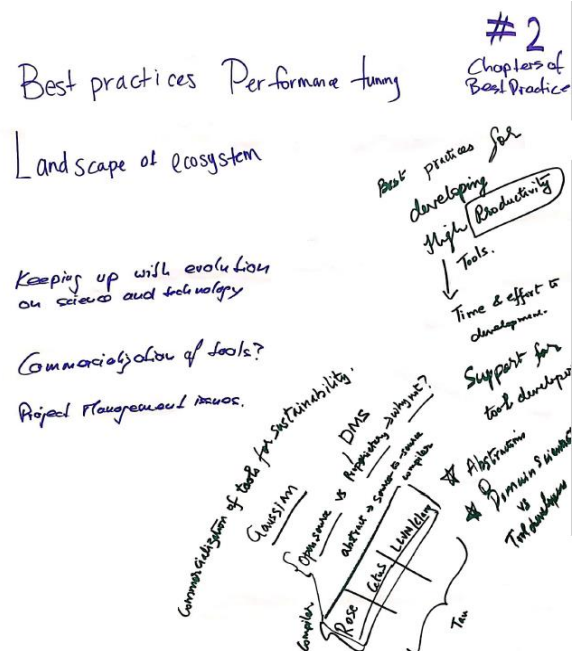 #2
Chapters of
Best Practice
Best practices Performance tuning
Landscape of ecosystem
Keeping up with evolution
on science and technology
Commercialization of tools?
Project Management issues.
Best practices for
developing
High Productivity
Tools.
Time & effort to
development.
Support for
tool develope
★ Abstractions
★ Domain Scientist
vs
Tool developers
Commercialization of tools for sustainability.
Gaussian
DMS
Open source vs Proprietary → why not?
abstract → source-to-source
compiler
Compiler
Rose
Cetus
LLVM/clang
Tau